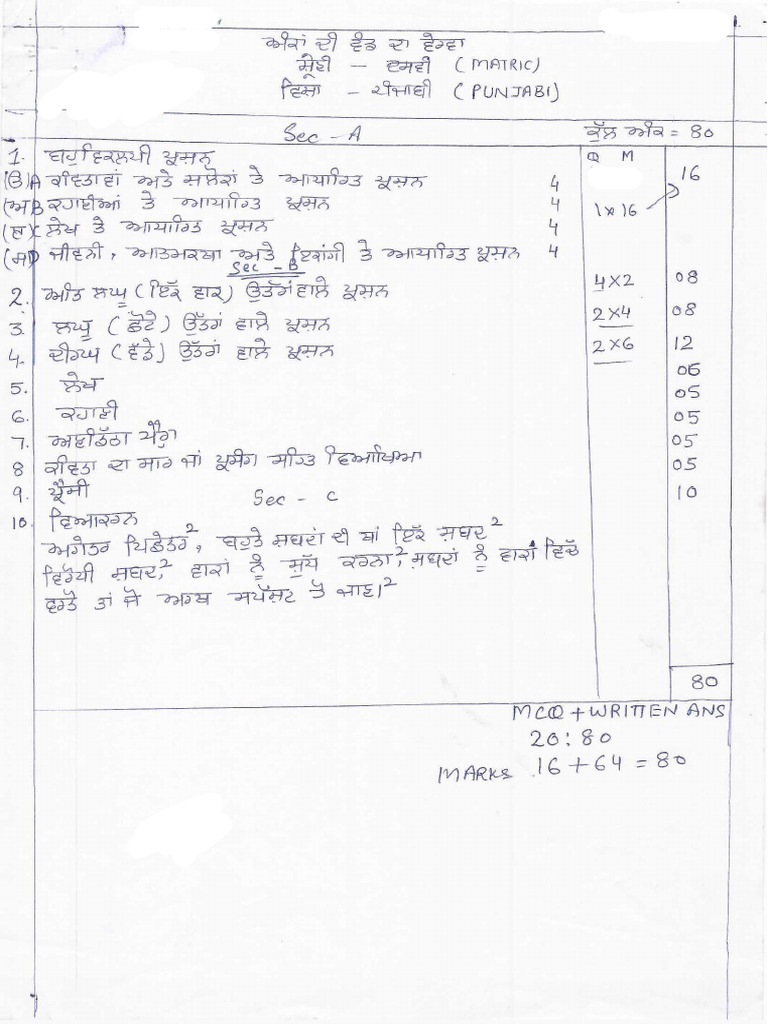 ਅੰਕਾਂ ਦੀ ਵੰਡ ਦਾ ਵੇਰਵਾ
ਸ਼੍ਰੇਣੀ - ਦਸਵੀਂ (MATRIC)
ਵਿਸ਼ਾ - ਪੰਜਾਬੀ (PUNJABI)
Sec - A ਕੁੱਲ ਅੰਕ = 80
1. ਬਹੁਵਿਕਲਪੀ ਪ੍ਰਸ਼ਨ Q M
(ੳ)A ਕਵਿਤਾਵਾਂ ਅਤੇ ਸ਼ਲੋਕਾਂ ਤੇ ਆਧਾਰਿਤ ਪ੍ਰਸ਼ਨ 4 16
(ਅ)B ਕਹਾਣੀਆਂ ਤੇ ਆਧਾਰਿਤ ਪ੍ਰਸ਼ਨ 4 1×16
C ਲੇਖ ਤੇ ਆਧਾਰਿਤ ਪ੍ਰਸ਼ਨ 4
(ਸ)D ਜੀਵਨੀ, ਆਤਮਕਥਾ ਅਤੇ ਇਕਾਂਗੀ ਤੇ ਆਧਾਰਿਤ ਪ੍ਰਸ਼ਨ 4
Sec - B
2. ਅਤਿ ਲਘੂ (ਇੱਕ ਵਾਕ) ਉੱਤਰਾਂ ਵਾਲੇ ਪ੍ਰਸ਼ਨ 4×2 08
3. ਲਘੂ (ਛੋਟੇ) ਉੱਤਰਾਂ ਵਾਲੇ ਪ੍ਰਸ਼ਨ 2×4 08
4. ਦੀਰਘ (ਵੱਡੇ) ਉੱਤਰਾਂ ਵਾਲੇ ਪ੍ਰਸ਼ਨ 2×6 12
5. ਲੇਖ 06
6. ਕਹਾਣੀ 05
7. ਅਣਡਿੱਠਾ ਪੈਰ੍ਹਾ 05
8 ਕਵਿਤਾ ਦਾ ਸਾਰ ਜਾਂ ਪ੍ਰਸੰਗ ਸਹਿਤ ਵਿਆਖਿਆ 05
9. ਪ੍ਰੈਸੀ 05
Sec - C
10. ਵਿਆਕਰਨ 10
ਅਗੇਤਰ ਪਿਛੇਤਰ², ਬਹੁਤੇ ਸ਼ਬਦਾਂ ਦੀ ਥਾਂ ਇੱਕ ਸ਼ਬਦ²
ਵਿਰੋਧੀ ਸ਼ਬਦ,² ਵਾਕਾਂ ਨੂੰ ਸ਼ੁੱਧ ਕਰਨਾ,² ਸ਼ਬਦਾਂ ਨੂੰ ਵਾਕਾਂ ਵਿੱਚ
ਵਰਤੋ ਤਾਂ ਜੋ ਅਰਥ ਸਪੱਸ਼ਟ ਹੋ ਜਾਣ।²
80
MCQ + WRITTEN ANS
20:80
MARKS 16 + 64 = 80